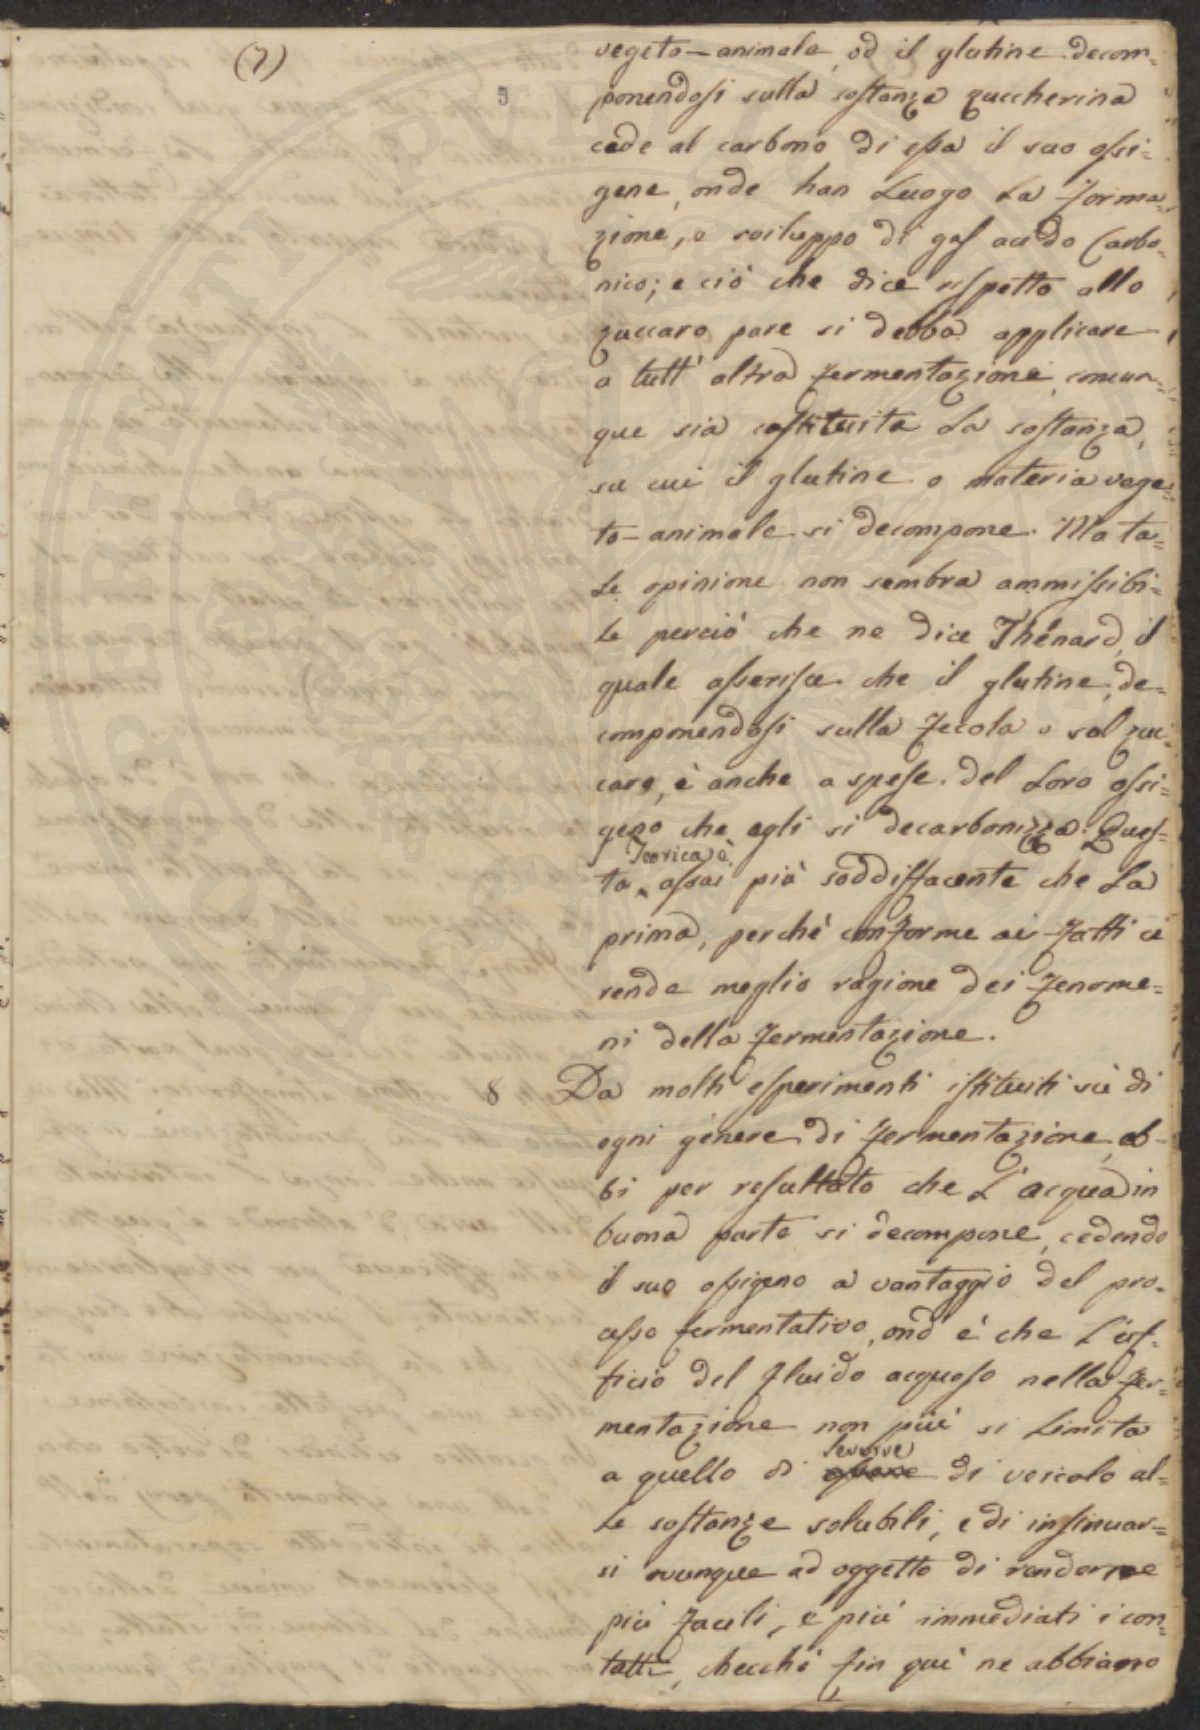 (7)
vegeto-animale, od il glutine decom-
ponendosi sulla sostanza zuccherina
cede al carbono di essa il suo ossi=
gene, onde han luogo la forma=
zione, e sviluppo di gas acido Carbo-
nico; e ciò che dice rispetto allo
zuccaro, pare si debba applicare
a tutt' altra fermentazione, comun=
que sia costituita la sostanza,
su cui il glutine o materia vege=
to-animale si decompone. Ma ta=
le opinione non sembra ammissibi=
le perciò che ne dice Thénard, il
quale asserisce che il glutine, de=
componendosi sulla fecola o sul zuc=
caro, è anche a spese del loro ossi=
geno che egli si decarbonizza. Ques=
ta Teorica è assai più soddisfacente che la
prima, perchè conforme ai fatti ci
rende meglio ragione dei fenome=
ni della fermentazione.
8 Da molti esperimenti istituiti sù di
ogni genere di fermentazione, eb-
bi per resultato che l'acqua in
buona parte si decompone, cedendo
il suo ossigeno a vantaggio del pro-
cesso fermentativo, ond' è che l'uf-
ficio del fluido acquoso nella fer=
mentazione non più si limita
a quello di servire di veicolo al=
le sostanze solubili, e di insinuar=
si ovunque ad oggetto di renderne
più facili, e più immediati i con=
tatti, checchè fin quì ne abbiamo